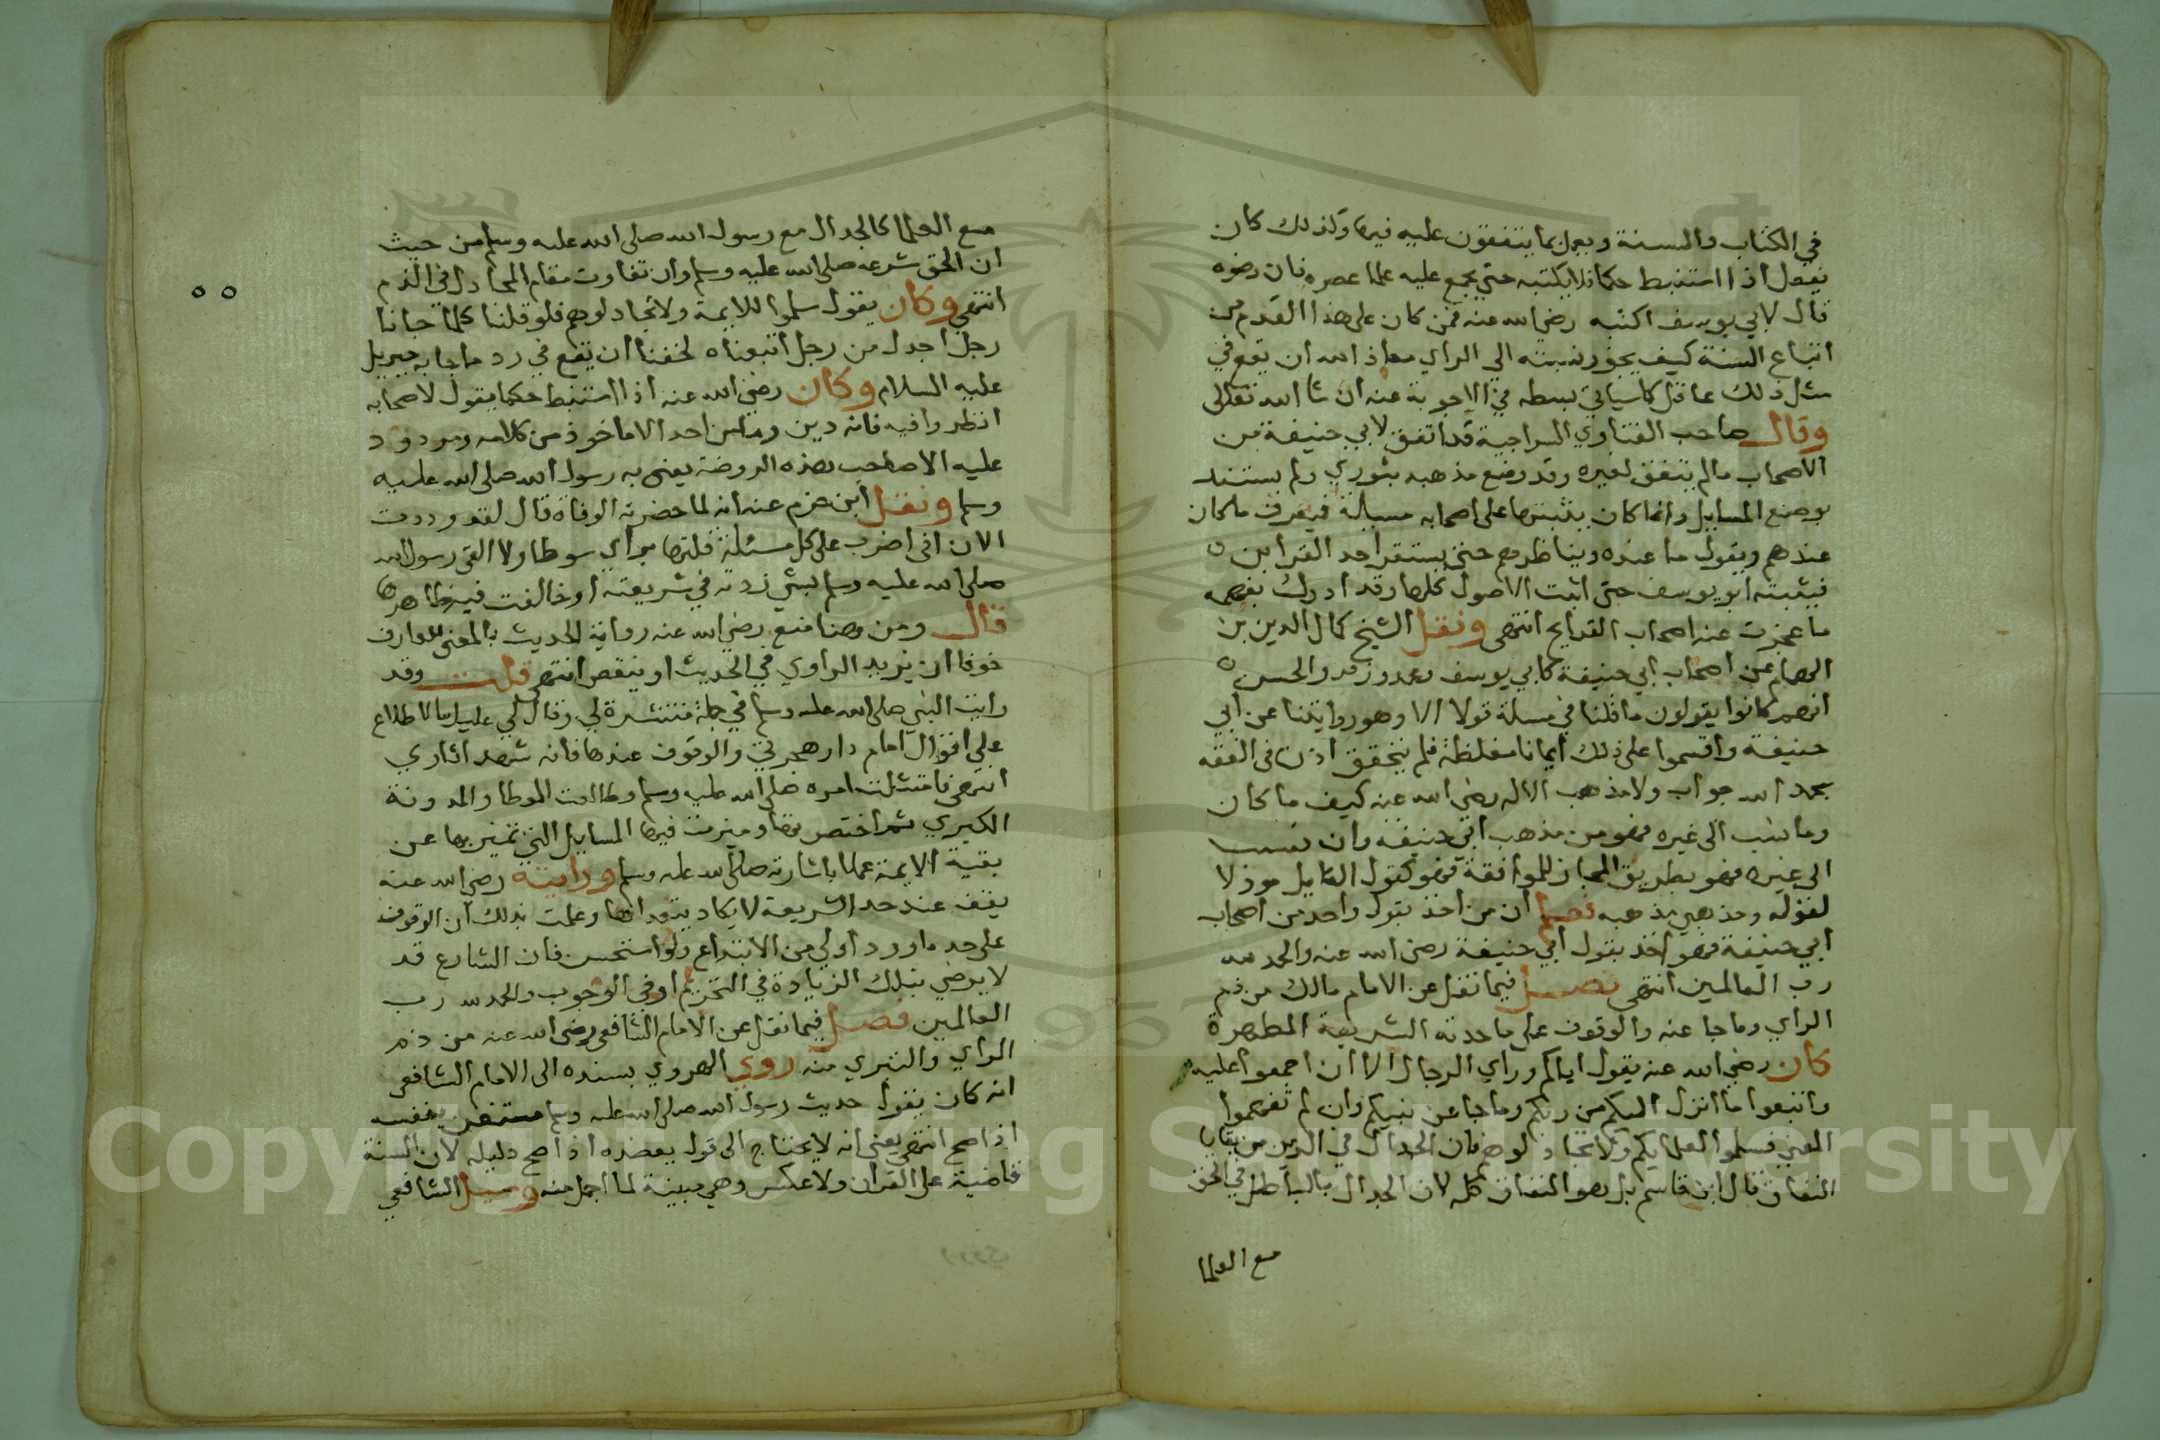 في الكتاب والسنة ويعمل بما يتفقون عليه فيها وكذلك كان
يفعل اذا استنبط حكما فلا يكتبه حتي يجمع عليه علما عصره فان رضوه
قال لابي يوسف اكتبه رضي الله عنه فمن كان علي هذا القدم من
اتباع السنة كيف يجوز نسبته الي الراي معاذ الله ان يقع في
مثل ذلك عاقل كما سياتي بسطه في الاجوبة عنه ان شا الله تعالي
وقال صاحب الفتاوي السراجية قد اتفق لابي حنيفة من
الاصحاب ما لم يتفق لغيره وقد وضع مذهبه بشوري ولم يستند
بوضع المسايل وانما كان يثبتها علي اصحابه مسيلة فيعرف ما كان
عندهم ويقول ما عنده ويناظرهم حتي يستقر احد القرابن
فيثبته ابو يوسف حتي اثبت الاصول كلها وقد ادرك بفهمه
ما عجزت عنه اصحاب القرايح انتهي ونقل الشيخ كمال الدين بن
الهمام عن اصحاب ابي حنيفة كابي يوسف وزفر والحسن
انهم كانوا يقولون ما قلنا في مسلة قولا الا وهو روايتنا عن ابي
حنيفة واقسموا علي ذلك ايمانا مغلظة فلم يتحقق اذن في الفقه
بحمد الله جواب ولا مذهب الا له رضي الله عنه كيف ما كان
وما نسب الي غيره فهو من مذهب ابي حنيفة وان نسب
الي غيره فهو بطريق المجاز للموافقة فهو كقول القايل
لقوله ومذهبي مذهبه ان من اخذ بقول واحد من اصحاب
ابي حنيفة فهو اخذ بقول ابي حنيفة رضي الله عنه والحمد لله
رب العالمين انتهي فصل فيما نقل عن الامام مالك من ذم
الراي وما جا عنه والوقوف علي ما حدته الشريعة المطهرة
كان رضي الله عنه يقول اياكم وراي الرجال الا ان اجمعوا عليه
واتبعوا ما انزل اليكم من ربكم وما جا عن نبيكم وان لم تفهموا
المعني فسلموا لعلمايكم ولا تجادلوهم فان الجدال في الدين من بقايا
النفاق قال ابن قاسم بل هو النفاق كله لان الجدال بالباطل في الحق
مع العلما
مع العلما كالجدال مع رسول الله صلي الله عليه وسلم من حيث
ان الحق شرعه صلي الله عليه وسلم وان تفاوت مقام المجادل في الذم
انتهي وكان يقول سلموا للايمة ولا تجادلوهم فلو قلنا كلما جانا
رجل اجدل من رجل اتبعناه لخفنا ان يقع في رد ما جا به جبريل
عليه السلام وكان رضي الله عنه اذا استنبط حكما يقول لاصحابه
انظروا فيه فانه دين وما من احد الا ماخوذ من كلامه ومردود
عليه الا صاحب هذه الروضة يعني به رسول الله صلي الله عليه
وسلم ونقل ابن حزم عنه انه لما حضرته الوفاة قال لقد وددت
الان اني اضرب علي كل مسئلة قلتها براي سوطا ولا القي رسول الله
صلي الله عليه وسلم بشي زدته في شريعته او خالفت فيه ظاهرها
قال ومن هنا منع رضي الله عنه رواية الحديث بالمعني للعارف
خوفا ان يزيد الراوي في الحديث او ينقص انتهي قلت وقد
رايت النبي صلي الله عليه وسلم في جملة مبشرة لي وقال لي عليك بالاطلاع
علي اقوال امام دار هجرتي والوقوف عندها فانه شهد اثاري
انتهي فامتثلت امره صلي الله عليه وسلم وطالعت الموطا والمدونة
الكبري ثم اختصرتها وميزت فيها المسايل التي تميز بها عن
بقية الايمة عملا باشارته صلي الله عليه وسلم ورايته رضي الله عنه
يقف عند حد الشريعة لا يكاد يتعداها وعلمت بذلك ان الوقوف
علي حد ما ورد اولي من الابتداع ولو استحسن فان الشارع قد
لا يرضي بتلك الزيادة في التحريم او في الوجوب والحمد لله رب
العالمين فصل فيما نقل عن الامام الشافعي رضي الله عنه من ذم
الراي والتبري منه روي الهروي بسنده الي الامام الشافعي
انه كان يقول حديث رسول الله صلي الله عليه وسلم مستغن بنفسه
اذا صح انتهي يعني انه لا يحتاج الي قول يعضده اذا صح دليله لان السنة
قاضية علي القران ولا عكس وهي مبينة لما اجمل منه وسيل الشافعي
Copyright © King Saud University